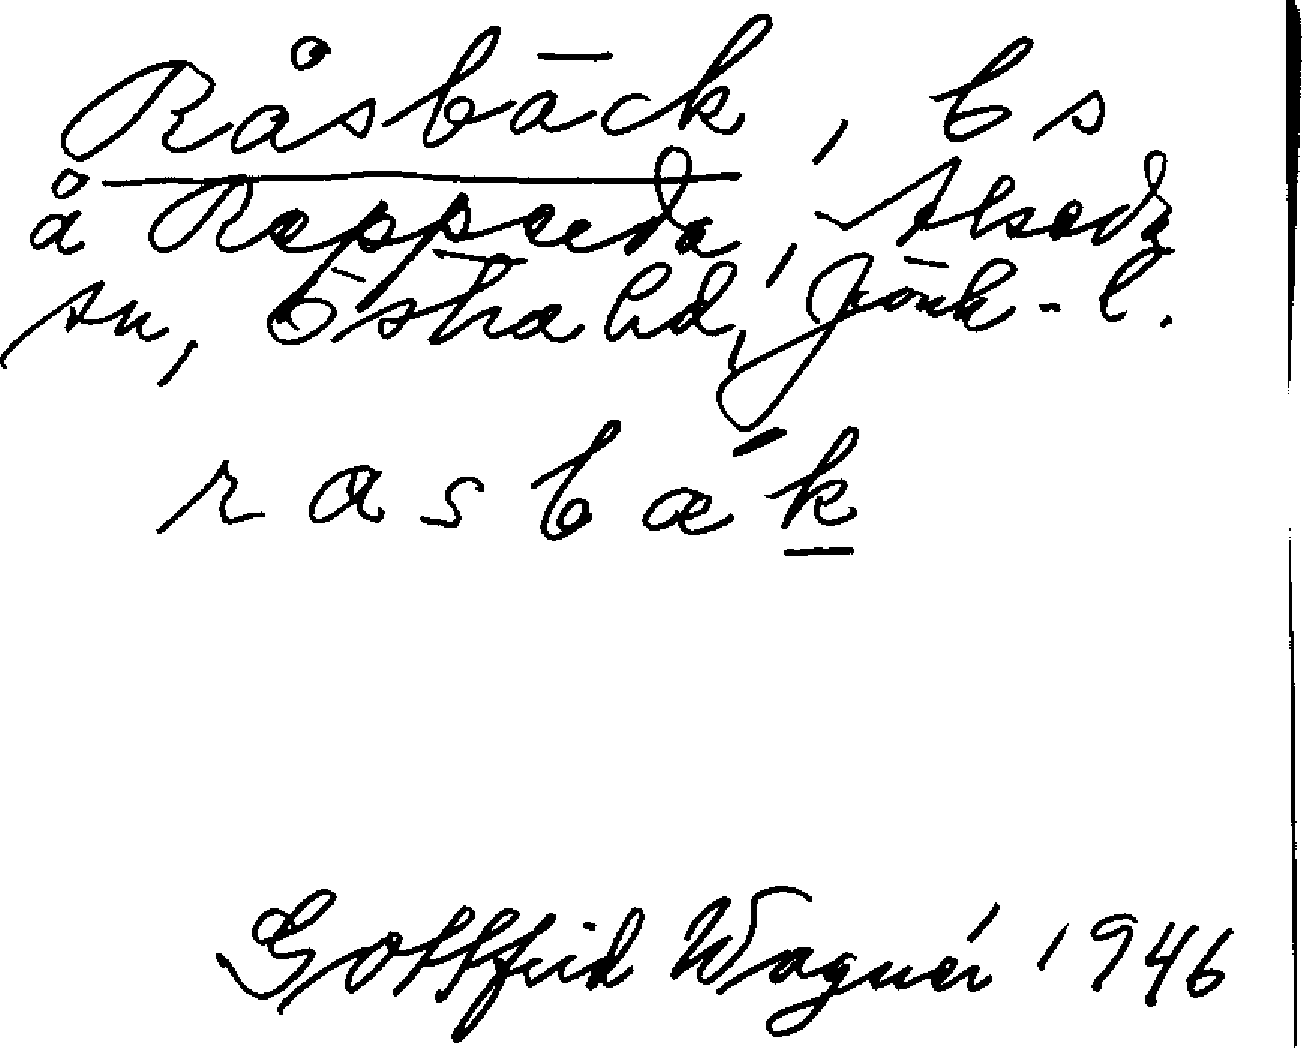 Råsbäck, bs
å Repperda, Alseda
sn, Östra hd, Jönk-l.
rasbæ´k
Gottfrid Wagnér 1946